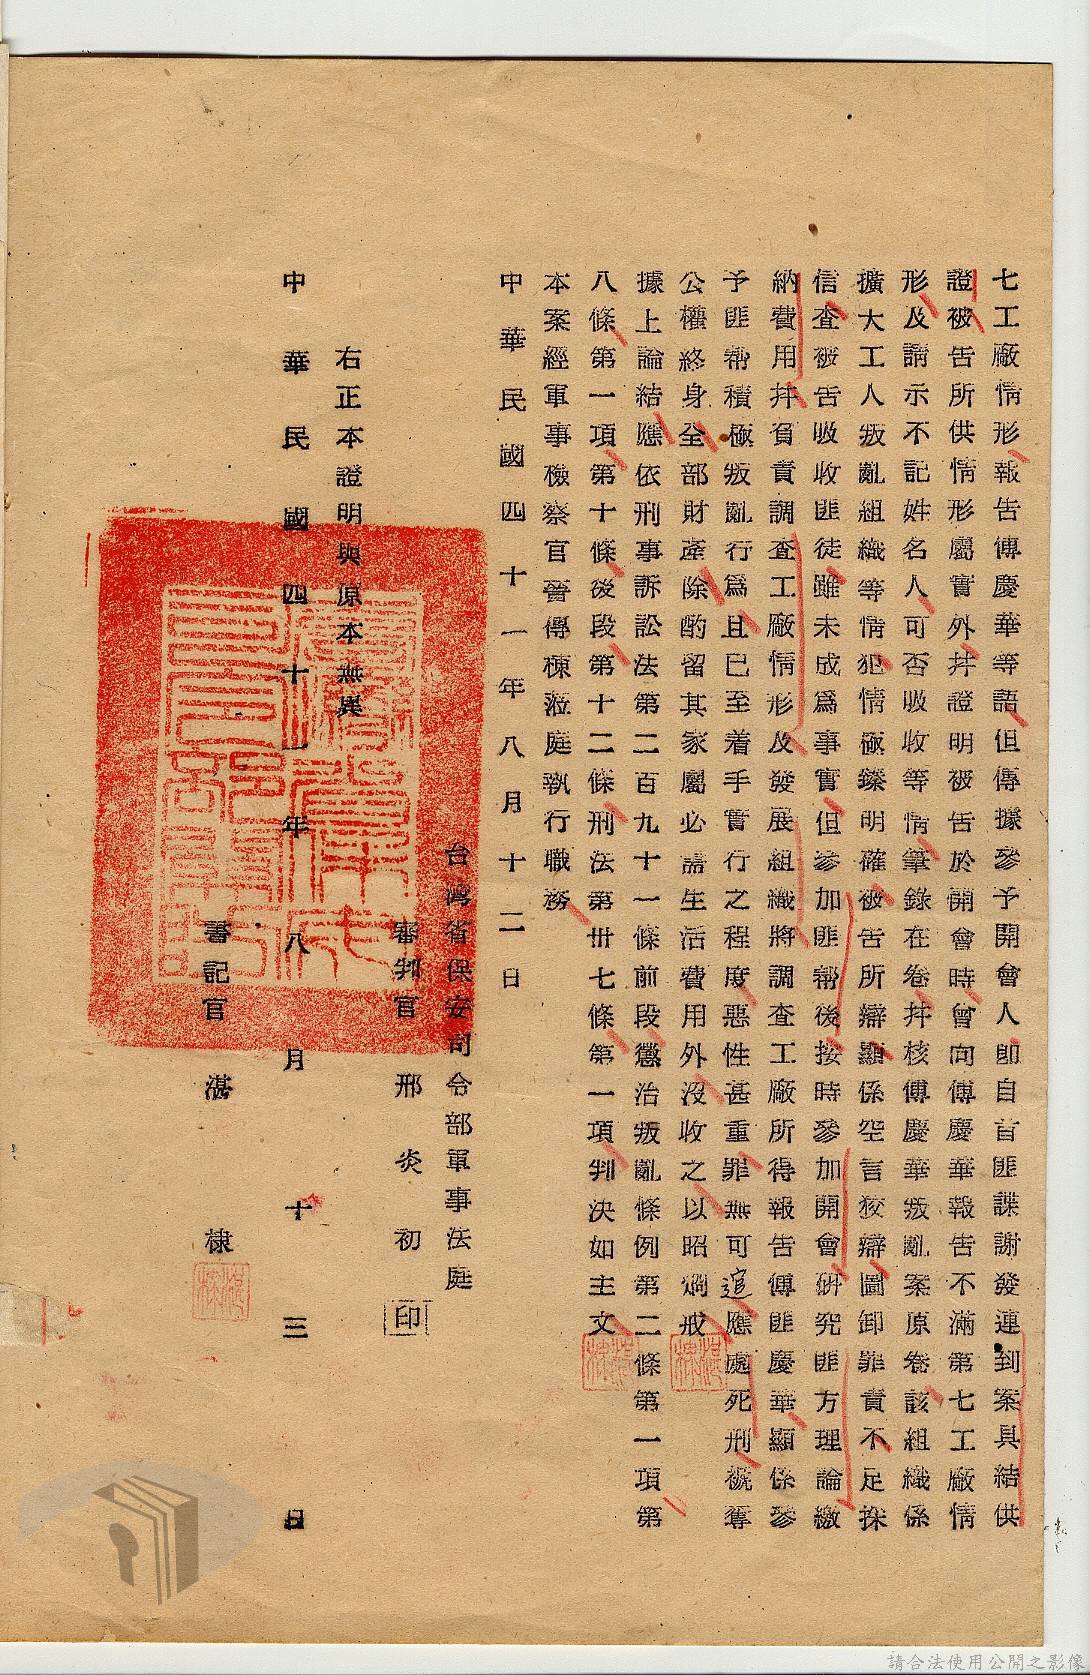 七工廠情形報告傅慶華等語但傅據參予開會人卽自首匪諜謝發連到案具結供
證被告所供情形屬實外并證明被告於開會時曾向傅慶華報告不滿第七工廠情
形及請示不記姓名人可否吸收等情筆錄在卷并核傅慶華叛亂案原卷該組織係
擴大工人叛亂組織等情犯情極臻明確被告所辯顯係空言狡辯圖卸罪責不足採
信查被告吸收匪徒雖未成爲事實但參加匪幫後按時參加開會硏究匪方理論繳
納費用并負責調查工廠情形及發展組織將調查工廠所得報告傅匪慶華顯係參
予匪幫積極叛亂行爲且已至着手實行之程度惡性甚重罪無可逭應處死刑褫奪
公權終身全部財產除酌留其家屬必需生活費用外沒收之以昭烱戒
據上論結應依刑事訴訟法第二百九十一條前段懲治叛亂條例第二條第一項第
八條第一項第十條後段第十二條刑法第卅七條第一項判決如主文
本案經軍事檢察官晉傳棟蒞庭執行職務
中華民國四十一年八月十二日
台灣省保安司令部軍事法庭
審判官 邢炎初 印
右正本證明與原本無異
中華民國四十一年八月十三日
書記官 湛棣
請合法使用公開之影像